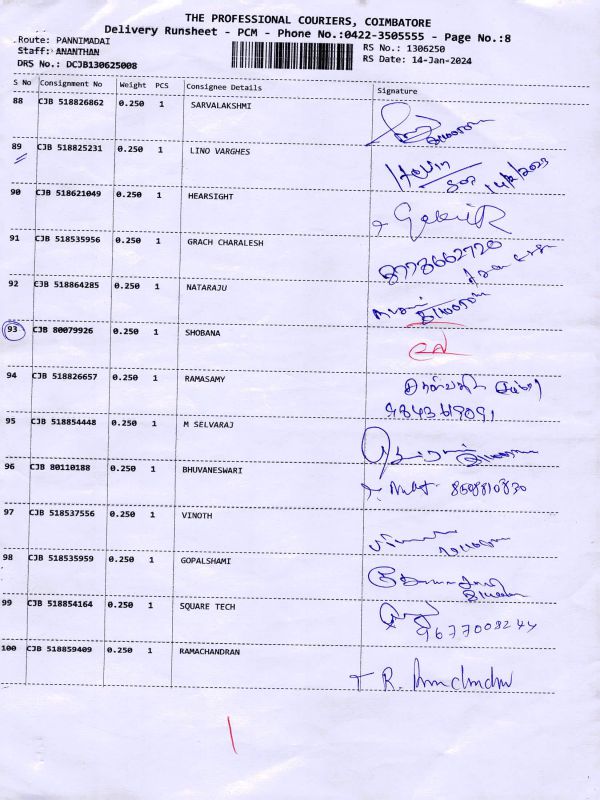 THE PROFESSIONAL COURIERS, COIMBATORE
Delivery Runsheet - PCM - Phone No.:0422-3505555 - Page No.:8
Route: PANNIMADAI
RS No.: 1306250
Staff: ANANTHAN
RS Date: 14-Jan-2024
DRS No.: DCJB130625008
S No Consignment No Weight PCS Consignee Details Signature
88 CJB 518826862 0.250 1 SARVALAKSHMI
89 CJB 518825231 0.250 1 LINO VARGHES
90 CJB 518621049 0.250 1 HEARSIGHT
91 CJB 518535956 0.250 1 GRACH CHARALESH
8778662720
92 CJB 518864285 0.250 1 NATARAJU
93 CJB 80079926 0.250 1 SHOBANA
94 CJB 518826657 0.250 1 RAMASAMY
9843619091
95 CJB 518854448 0.250 1 M SELVARAJ
96 CJB 80110188 0.250 1 BHUVANESWARI
97 CJB 518537556 0.250 1 VINOTH
98 CJB 518535959 0.250 1 GOPALSHAMI
99 CJB 518854164 0.250 1 SQUARE TECH
9677008244
100 CJB 518859409 0.250 1 RAMACHANDRAN